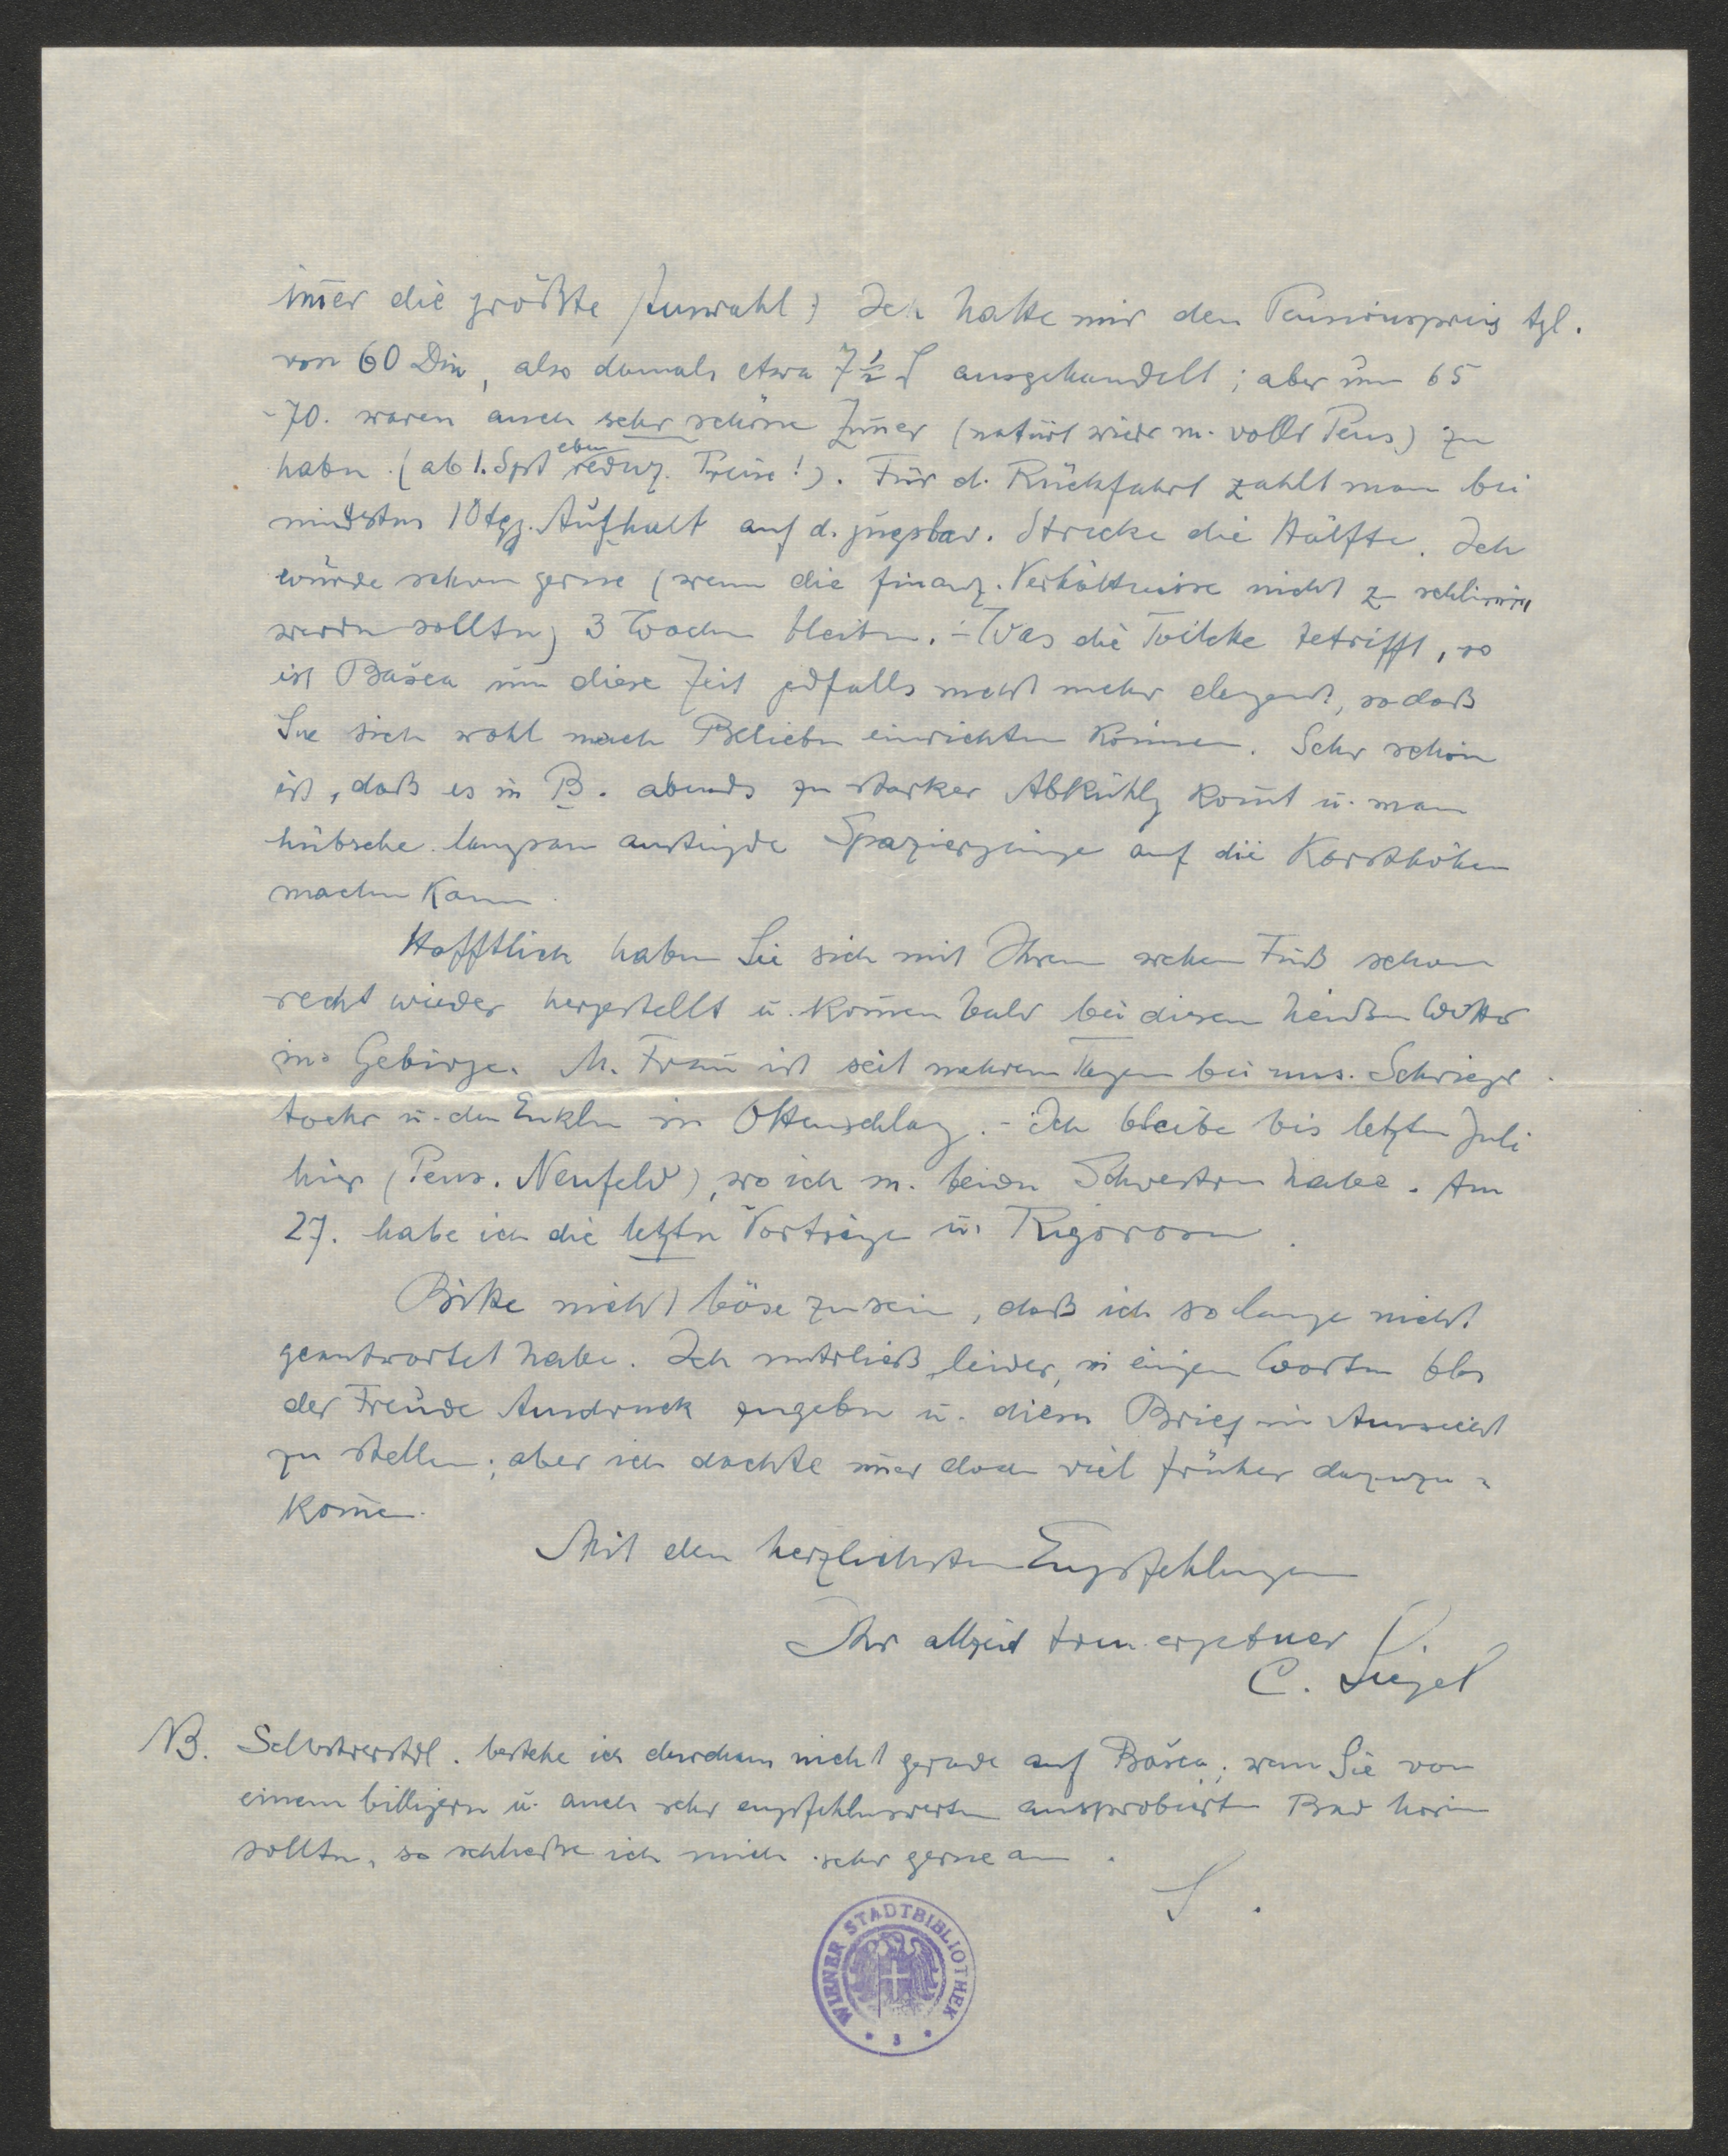 im̅er die größte Auswahl) Ich hatte mir den Pensionspreis tgl.
von 60 Din, also damals etwa 7½ S ausgehandelt; aber um 65
-70. waren auch sehr schöne Zim̅er (natürl wieder m. voller Pens) zu
haben. (ab 1. Spt eben reduz. Preise!). Für d. Rückfahrt zahlt man bei
mindstns 10tgg. Aufhalt auf d. jugslav. Strecke die Hälfte. Ich
würde schon gerne (wenn die finanz. Verhältnisse nicht z schlimm
werdn solltn) 3 Wochn bleibn. - Was die Toilette betrifft, so
ist Bašca um diese Zeit jedfalls nicht mehr elegant, sodaß
Sie sich wohl nach Beliebn einrichtn können. Sehr schön
ist, daß es in B. abends zu starker Abkühlg kom̅t u. man
hübsche langsam ansteigde Spaziergänge auf die Karsthöhen
machn kann.
Hofftlich haben Sie sich mit Ihrem wehen Fuß schon
recht wieder hergestellt u. kom̅en bald bei diesem heißen Wetter
ins Gebirge. M. Frau ist seit mehreren Tagen bei uns. Schwieger
tochtr u. den Enkeln in Ottenschlag. - Ich bleibe bis letztn Juli
hier (Pens. Neufeld), wo ich m. beidn Schwestrn habe. Am
27. habe ich die letztn Vorträge u. Rigorosen.
Bitte nicht böse zu sein, daß ich so lange nicht
geantwortet habe. Ich unterließ leider, in einigen Worten bls
der Freude Ausdruck zu geben u. diesn Brief in Aussicht
zu stellen; aber ich dachte im̅er doch viel früher dazuzu=
kom̅en.
Mit den herzlichsten Empfehlungen
Ihr allzeit treu ergebner
C. Siegel
NB. Selbstverstdl. bestehe ich durchaus nicht gerade auf Bašca; wenn Sie von
einem billigern u. auch sehr empfehlenswertn ausprobiertn Bad hörn
solltn, so schließe ich mich sehr gerne an.
S.
WIENER STADTBIBLIOTHEK
3